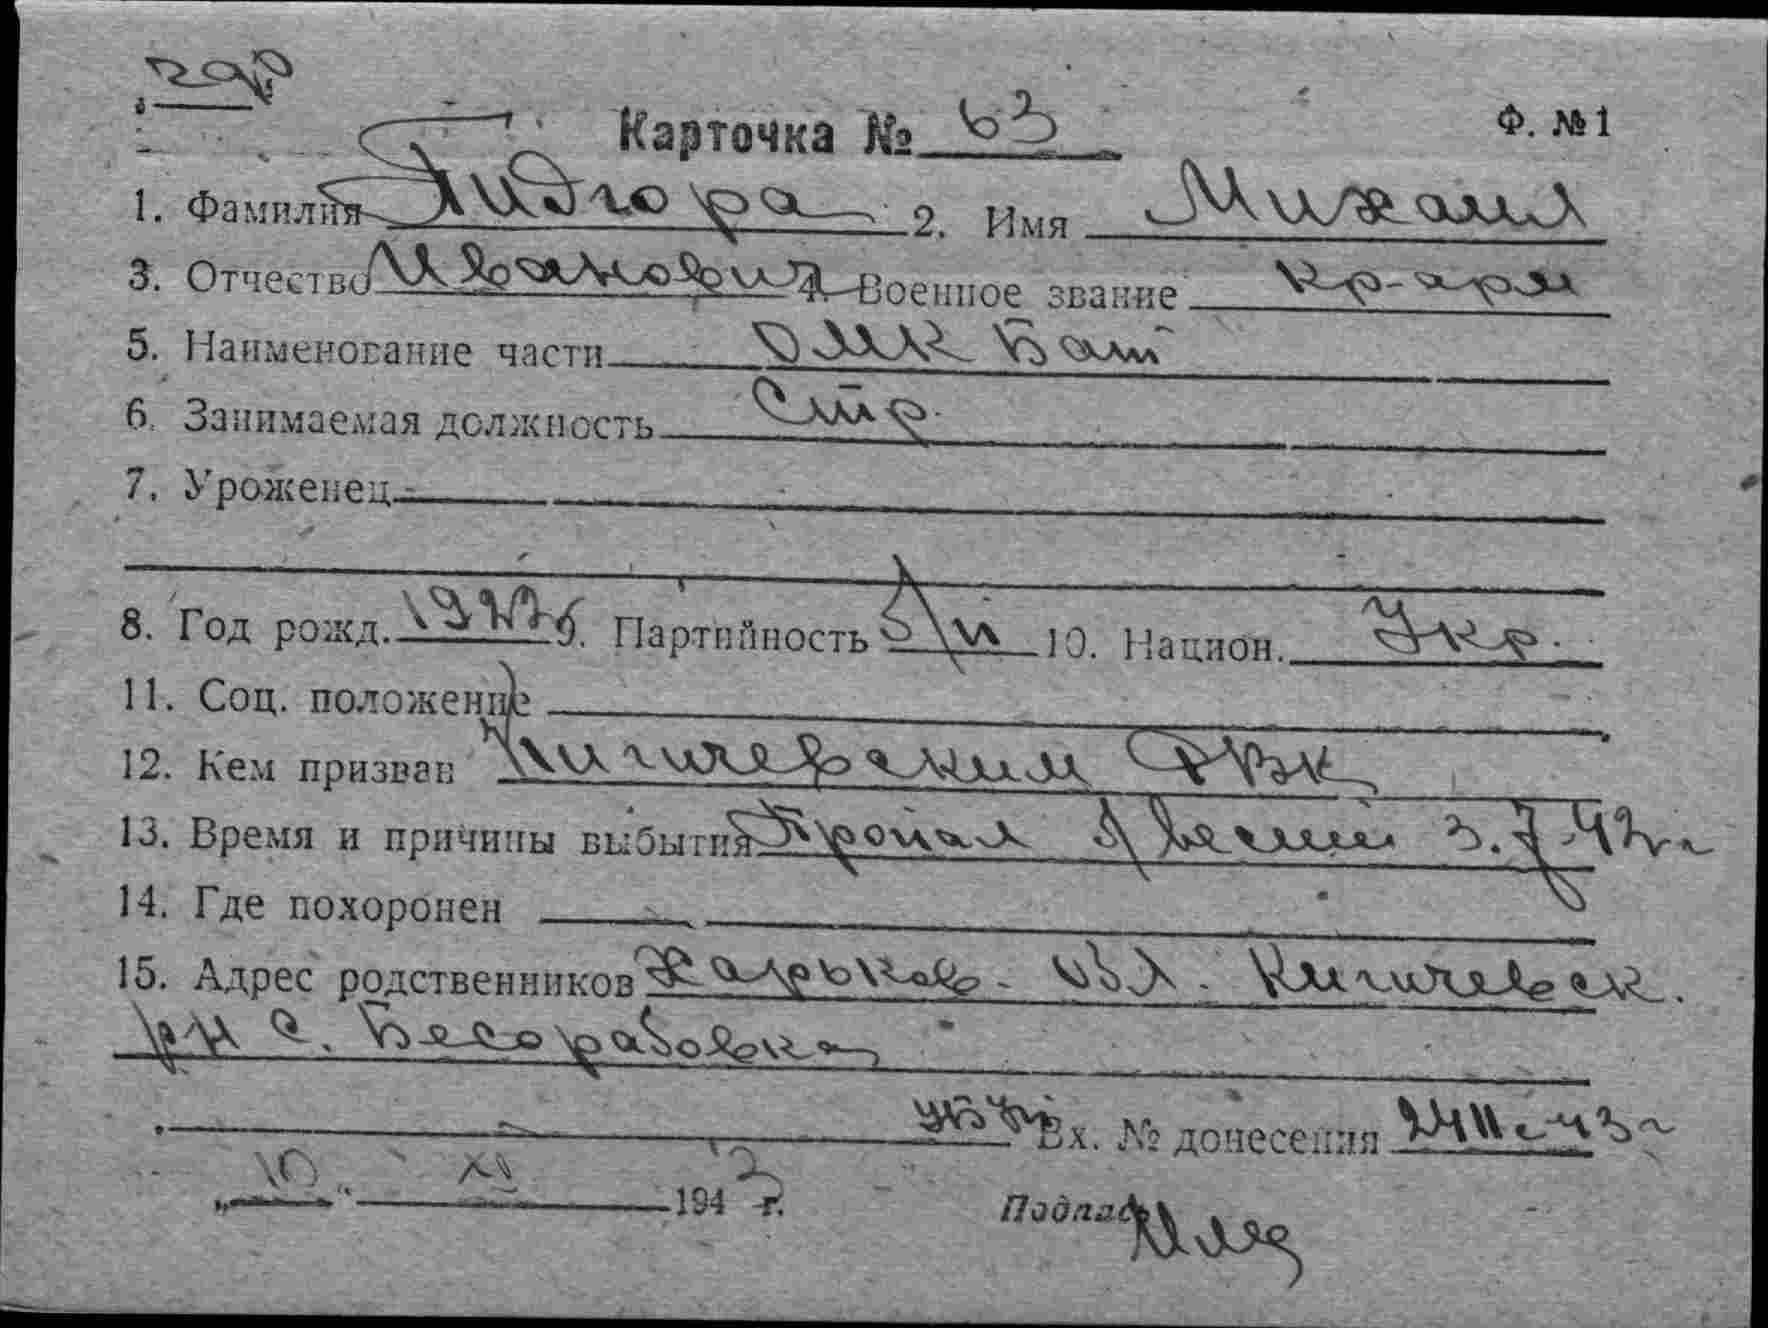 Карточка № 63 Ф. № 1
1. Фамилия Пидгора 2. Имя Михаил
3. Отчество Иванович 4. Военное звание кр-арм
5. Наименование части Бат
6. Занимаемая должность Стр.
7. Уроженец
8. Год рожд. 9. Партийность Б/п 10. Национ. Укр.
11. Соц. положение
12. Кем призван Кигичевским РВК
13. Время и причины выбытия Пропал б/вести 3.7.42 г
14. Где похоронен
15. Адрес родственников Харьков. обл. Кигичевск.
рн с. Бесарабовка
Вх. № донесения
„ 10 “ XI 1943 г.
Подпись